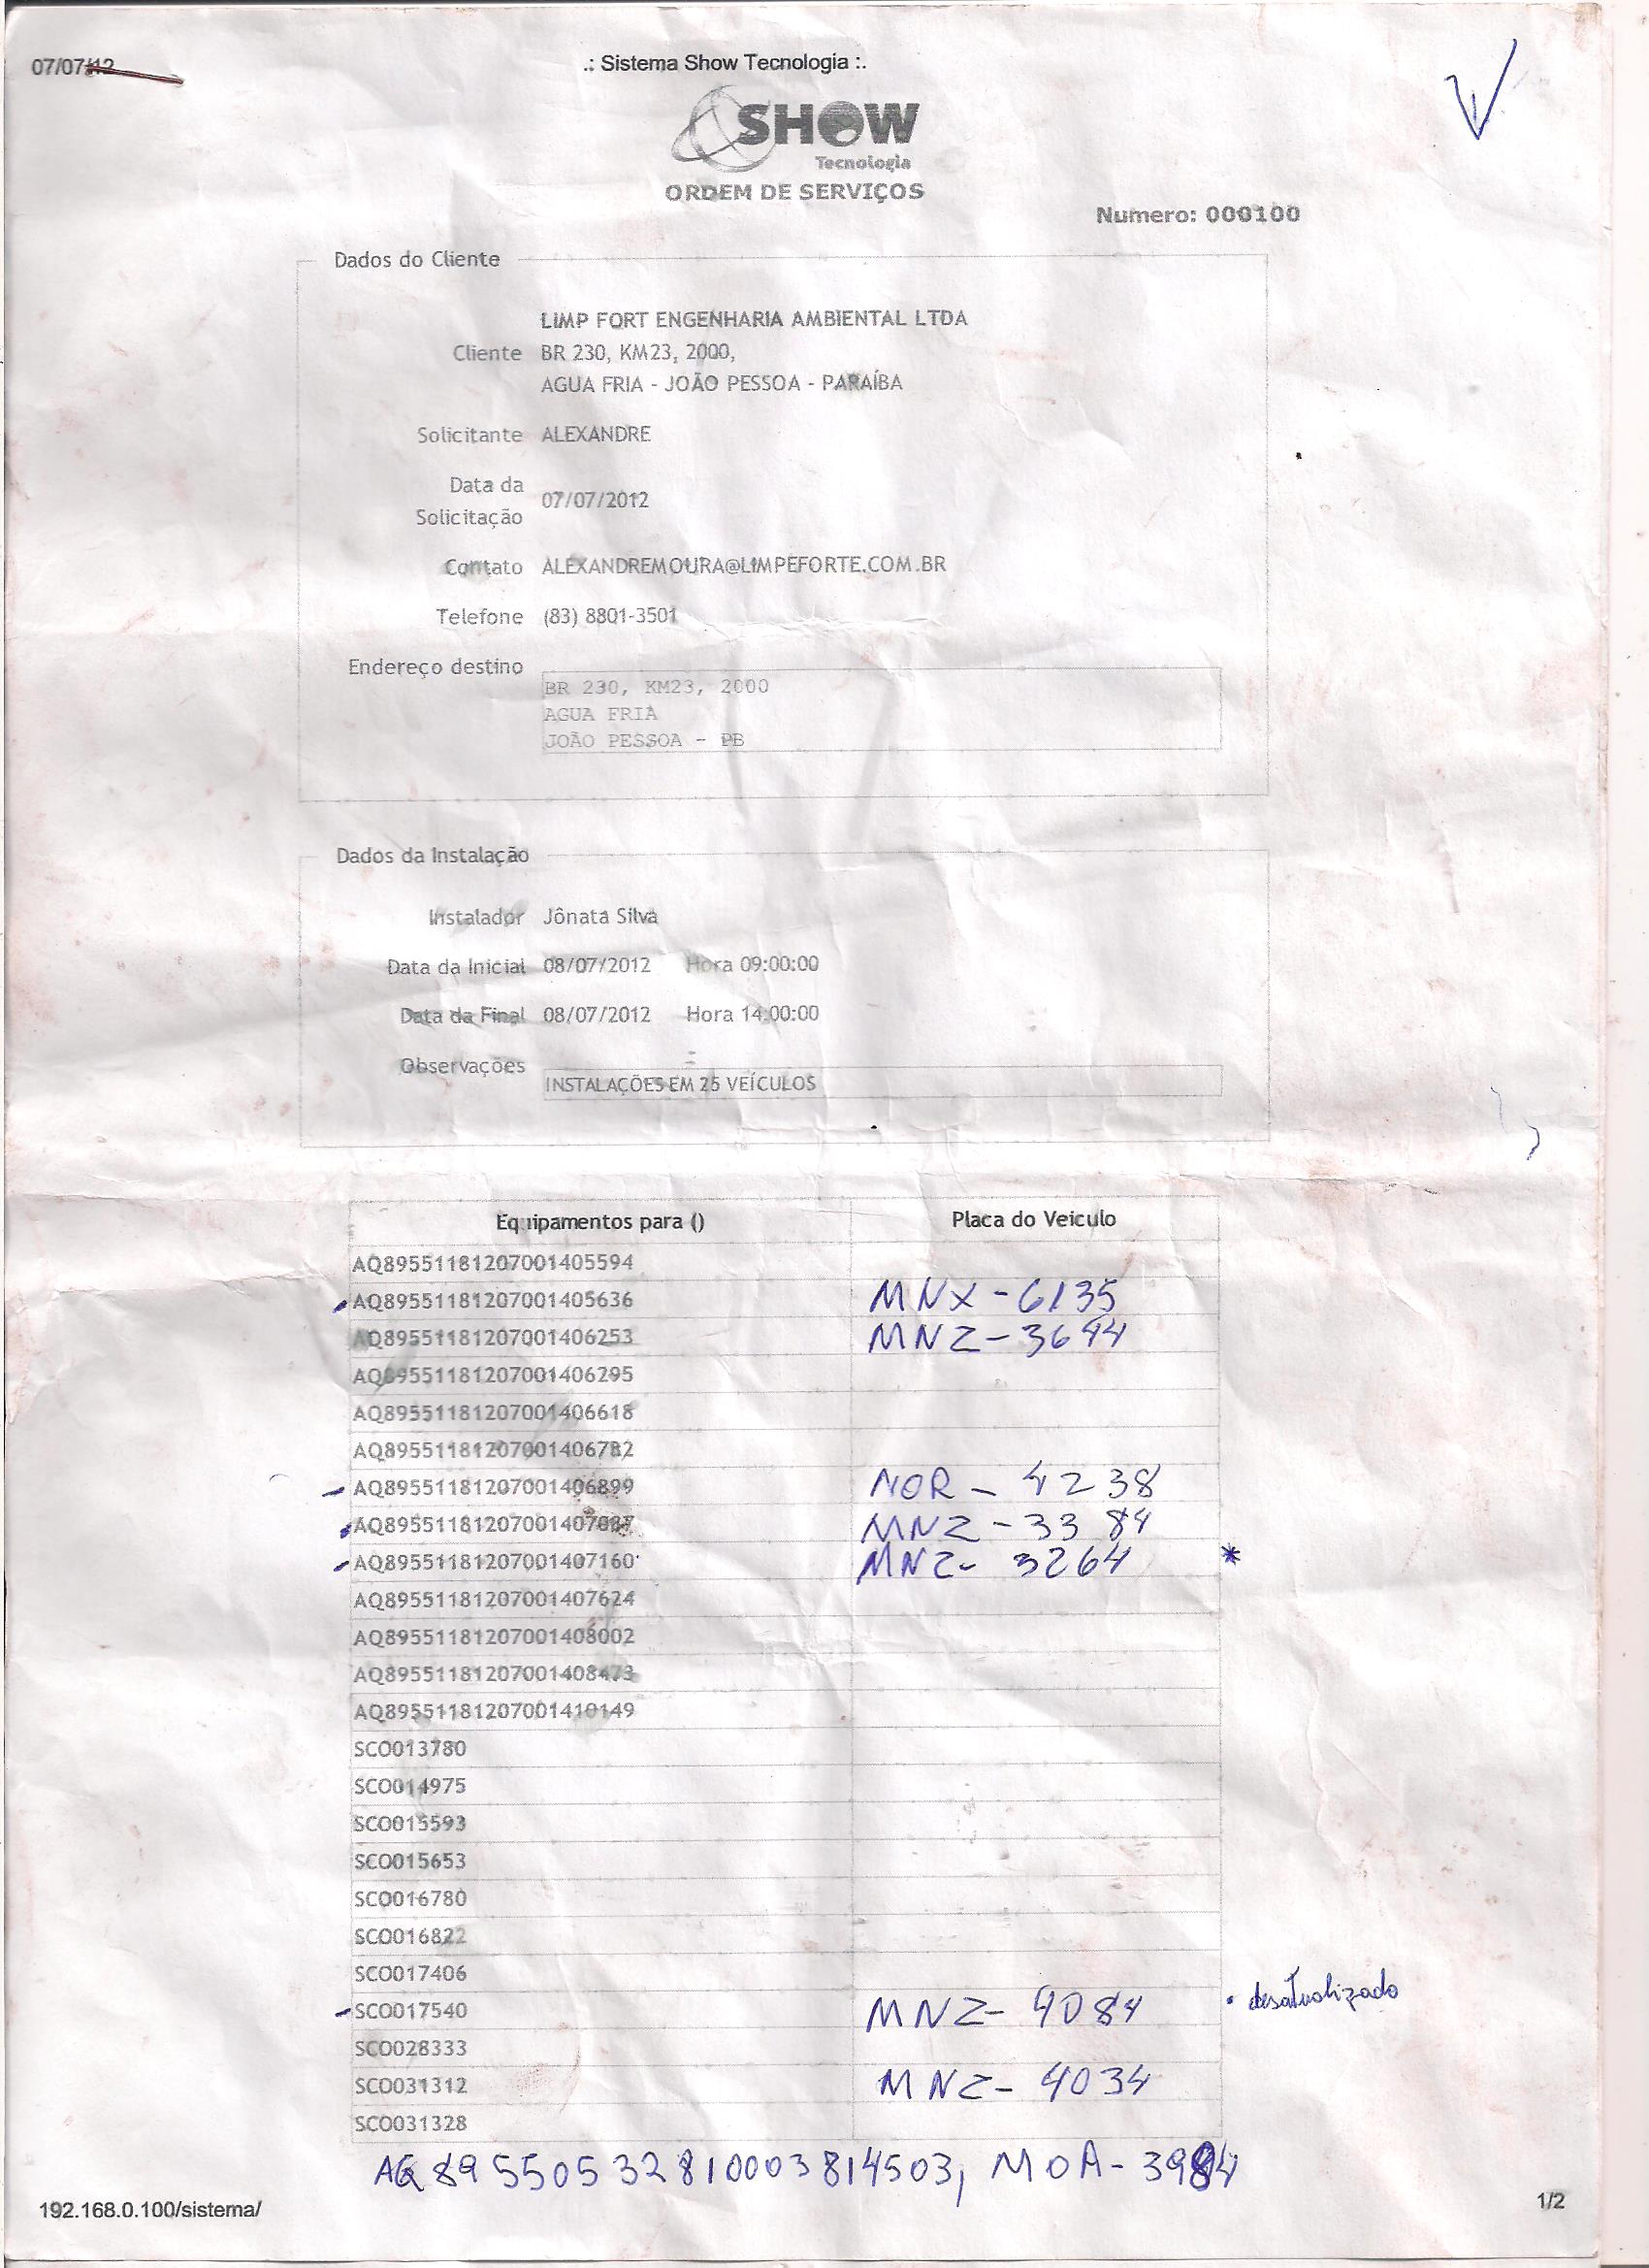 07/07/12
.: Sistema Show Tecnologia :.
SHOW
Tecnologia
ORDEM DE SERVIÇOS
Numero: 000100
Dados do Cliente
LIMP FORT ENGENHARIA AMBIENTAL LTDA
Cliente BR 230, KM23, 2000,
AGUA FRIA - JOÃO PESSOA - PARAÍBA
Solicitante ALEXANDRE
Data da
Solicitação 07/07/2012
Contato ALEXANDREMOURA@LIMPEFORTE.COM.BR
Telefone (83) 8801-3501
Endereço destino
BR 230, KM23, 2000
AGUA FRIA
JOÃO PESSOA - PB
Dados da Instalação
Instalador Jônata Silva
Data da Inicial 08/07/2012 Hora 09:00:00
Data da Final 08/07/2012 Hora 14:00:00
Observações
INSTALAÇÕES EM 25 VEÍCULOS
Equipamentos para () Placa do Veiculo
AQ89551181207001405594
AQ89551181207001405636 MNX-6135
AQ89551181207001406253 MNZ-3644
AQ89551181207001406295
AQ89551181207001406618
AQ89551181207001406782
AQ89551181207001406899 NOR-4238
AQ89551181207001407087 MNZ-3384
AQ89551181207001407160 MNZ-3264 *
AQ89551181207001407624
AQ89551181207001408002
AQ89551181207001408473
AQ89551181207001410149
SCO013780
SCO014975
SCO015593
SCO015653
SCO016780
SCO016822
SCO017406
SCO017540 MNZ-4084 • desatualizado
SCO028333
SCO031312 MNZ-4034
SCO031328
AQ89550532810003814503, MOA-3984
192.168.0.100/sistema/
1/2